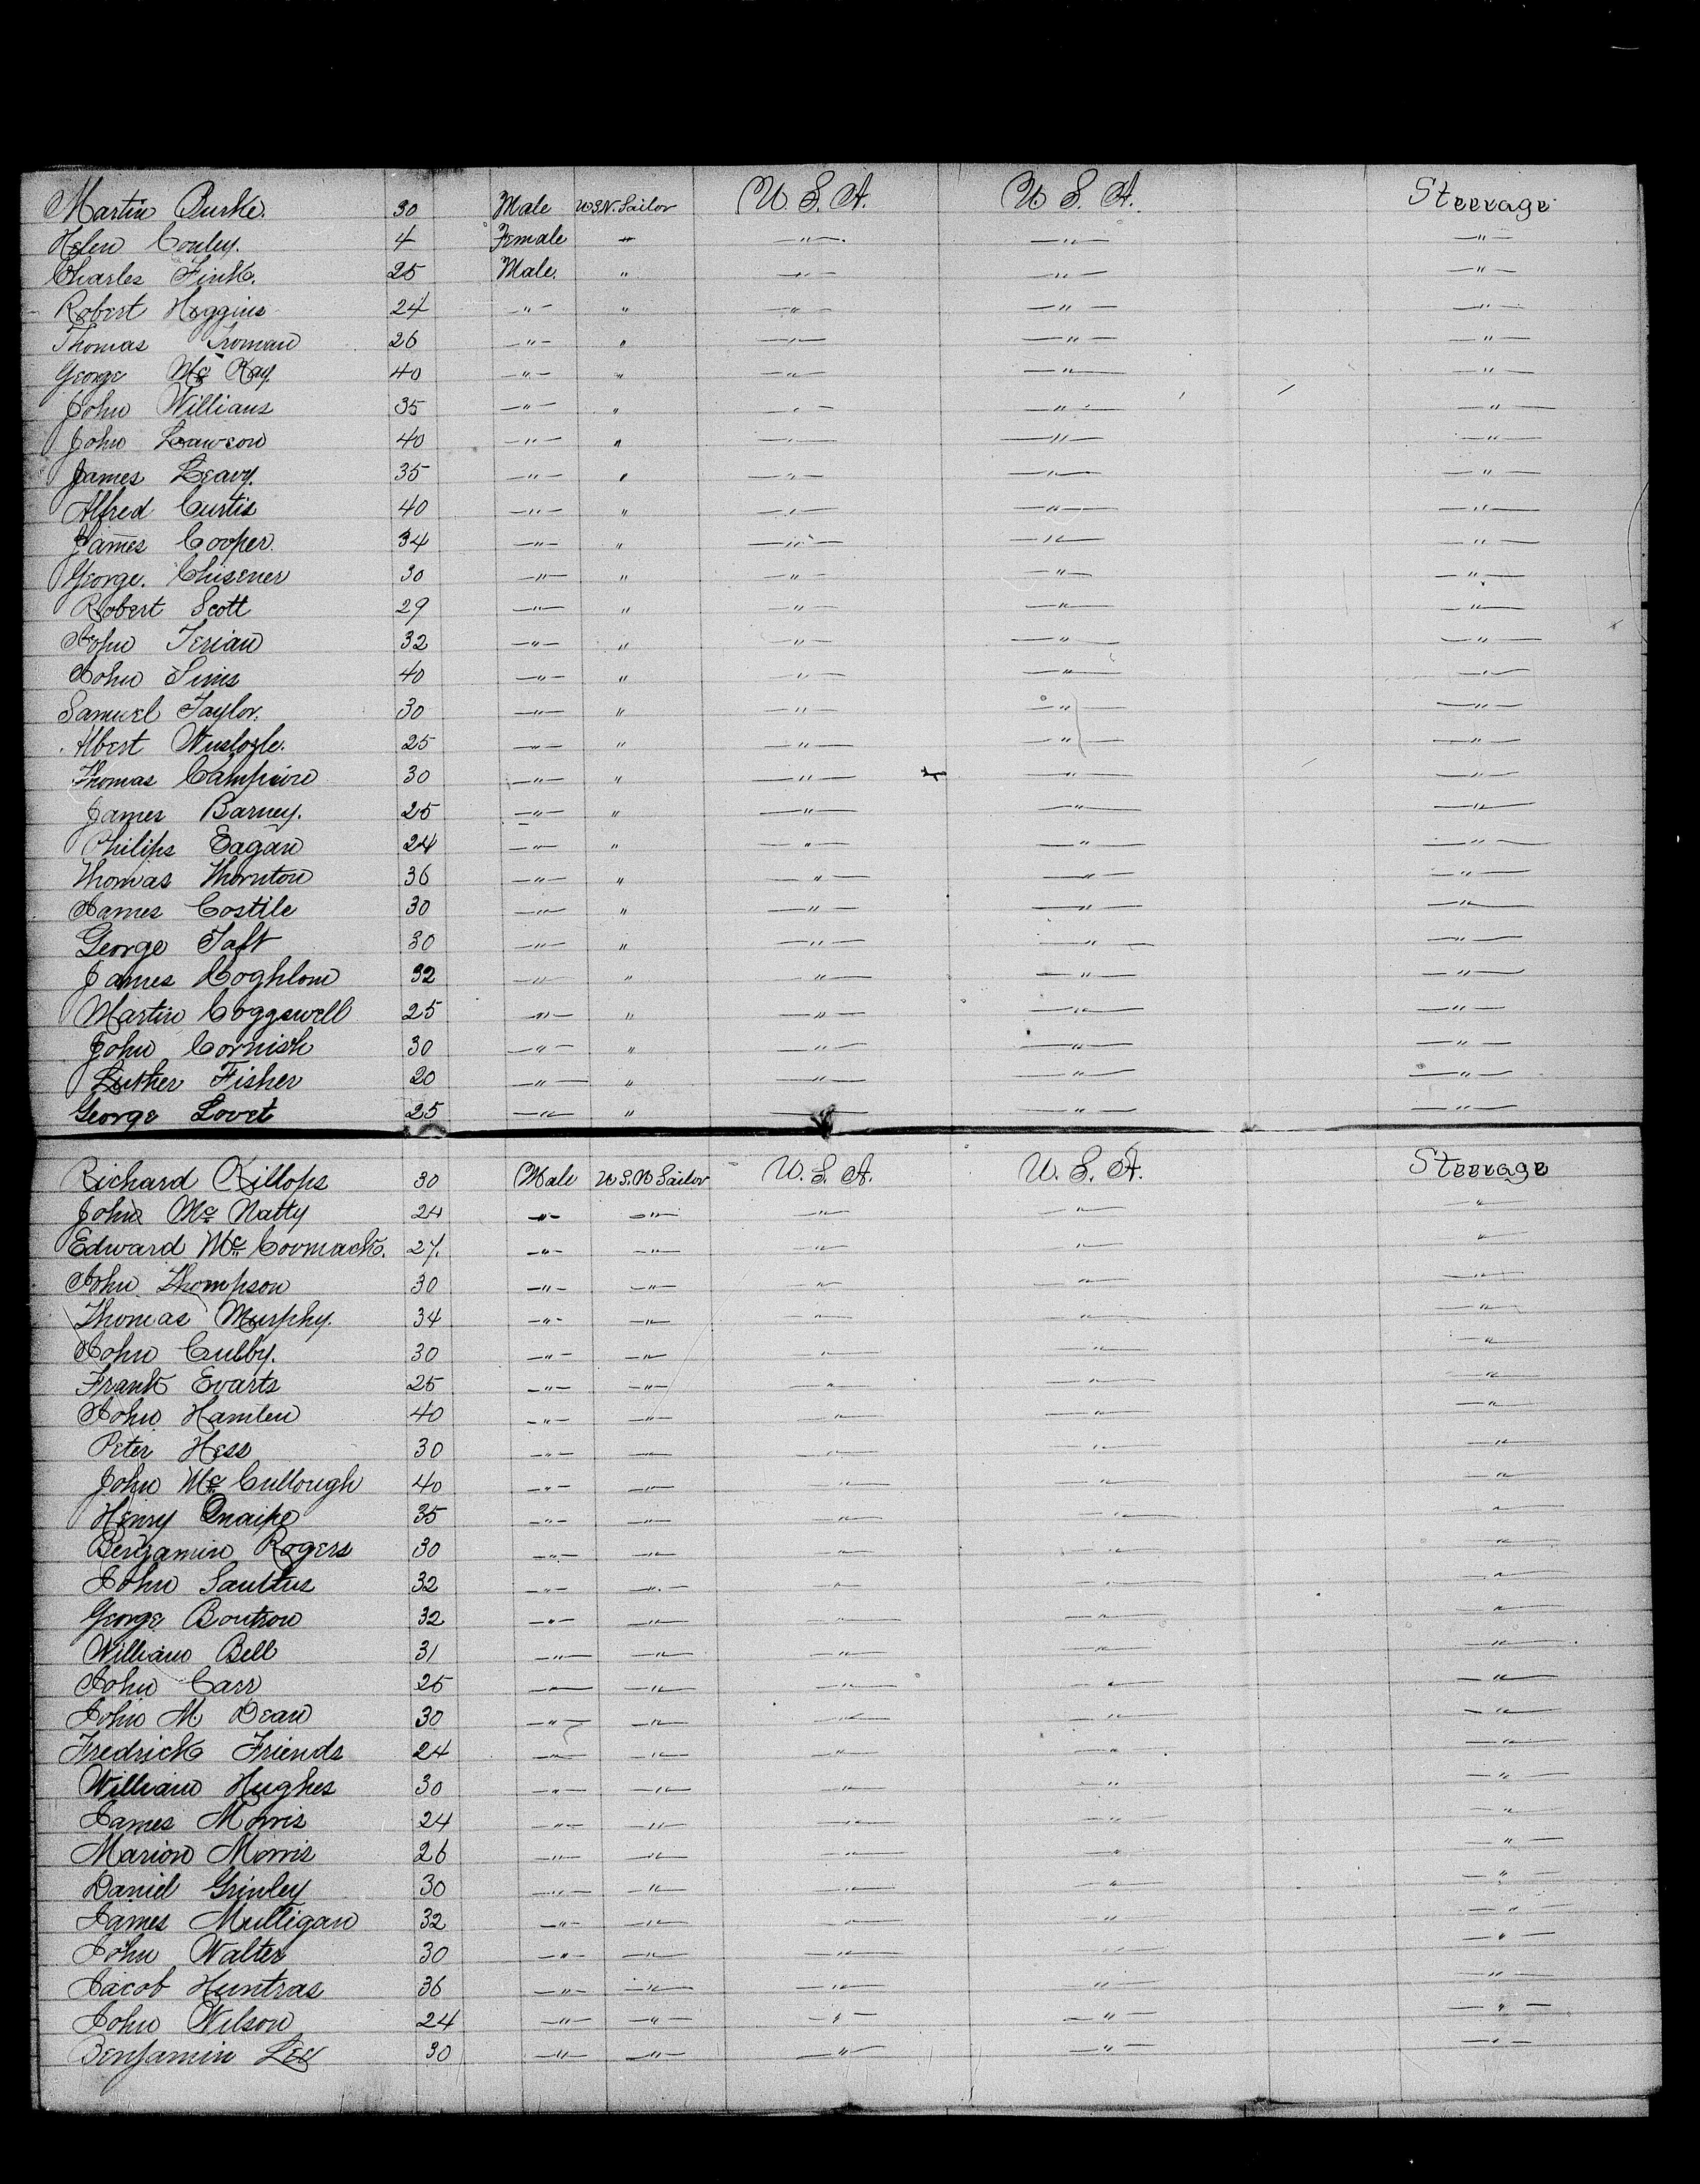 Martin Burke. 30 Male U.S.N. Sailor U.S.A. U.S.A. Steerage
Helen Conley. 4 Female " " " "
Charles Fink. 25 Male. " " " "
Robert Higgins 24 " " " " "
Thomas 26 " " " " "
George Mc Kay 40 " " " " "
John Williams 35 " " " " "
John Lawson 40 " " " " "
James Leavy. 35 " " " " "
Alfred Curtis 40 " " " " "
James Cooper. 34 " " " " "
George. Chisener 30 " " " " "
Robert Scott 29 " " " " "
John 32 " " " " "
John Sims 40 " " " " "
Samuel Taylor. 30 " " " " "
Albert 25 " " " " "
Thomas 30 " " " " "
James Barney. 25 " " " " "
Philips Eagan 24 " " " " "
Thomas Thornton 36 " " " " "
James Costile 30 " " " " "
George Taft 30 " " " " "
James Coghlom 32 " " " " "
Martin Coggswell 25 " " " " "
John Cornish 30 " " " " "
Luther Fisher 20 " " " " "
George Lovet 25 " " " " "
Richard Killops 30 Male U.S.N Sailor U.S.A. U.S.A. Steerage
John Mc Natty 24 " " " " "
Edward Mc Cormack. 27. " " " " "
John Thompson 30 " " " " "
Thomas Murphy. 34 " " " " "
John Culby. 30 " " " " "
Frank Evarts 25 " " " " "
John Hamlen 40 " " " " "
Peter Hess 30 " " " " "
John Mc Cullough 40 " " " " "
Henry 35 " " " " "
Benjamin Rogers 30 " " " " "
John 32 " " " " "
George Boutrou 32 " " " " "
William Bell 31 " " " " "
John Carr 25 " " " " "
John M. Dean 30 " " " " "
Fredrick Friends 24 " " " " "
William Hughes 30 " " " " "
James Morris 24 " " " " "
Marion Morris 26 " " " " "
Daniel Grinley 30 " " " " "
James Mulligan 32 " " " " "
John Walter 30 " " " " "
Jacob Huntras 36 " " " " "
John Wilson 24 " " " " "
Benjamin Lee 30 " " " " "